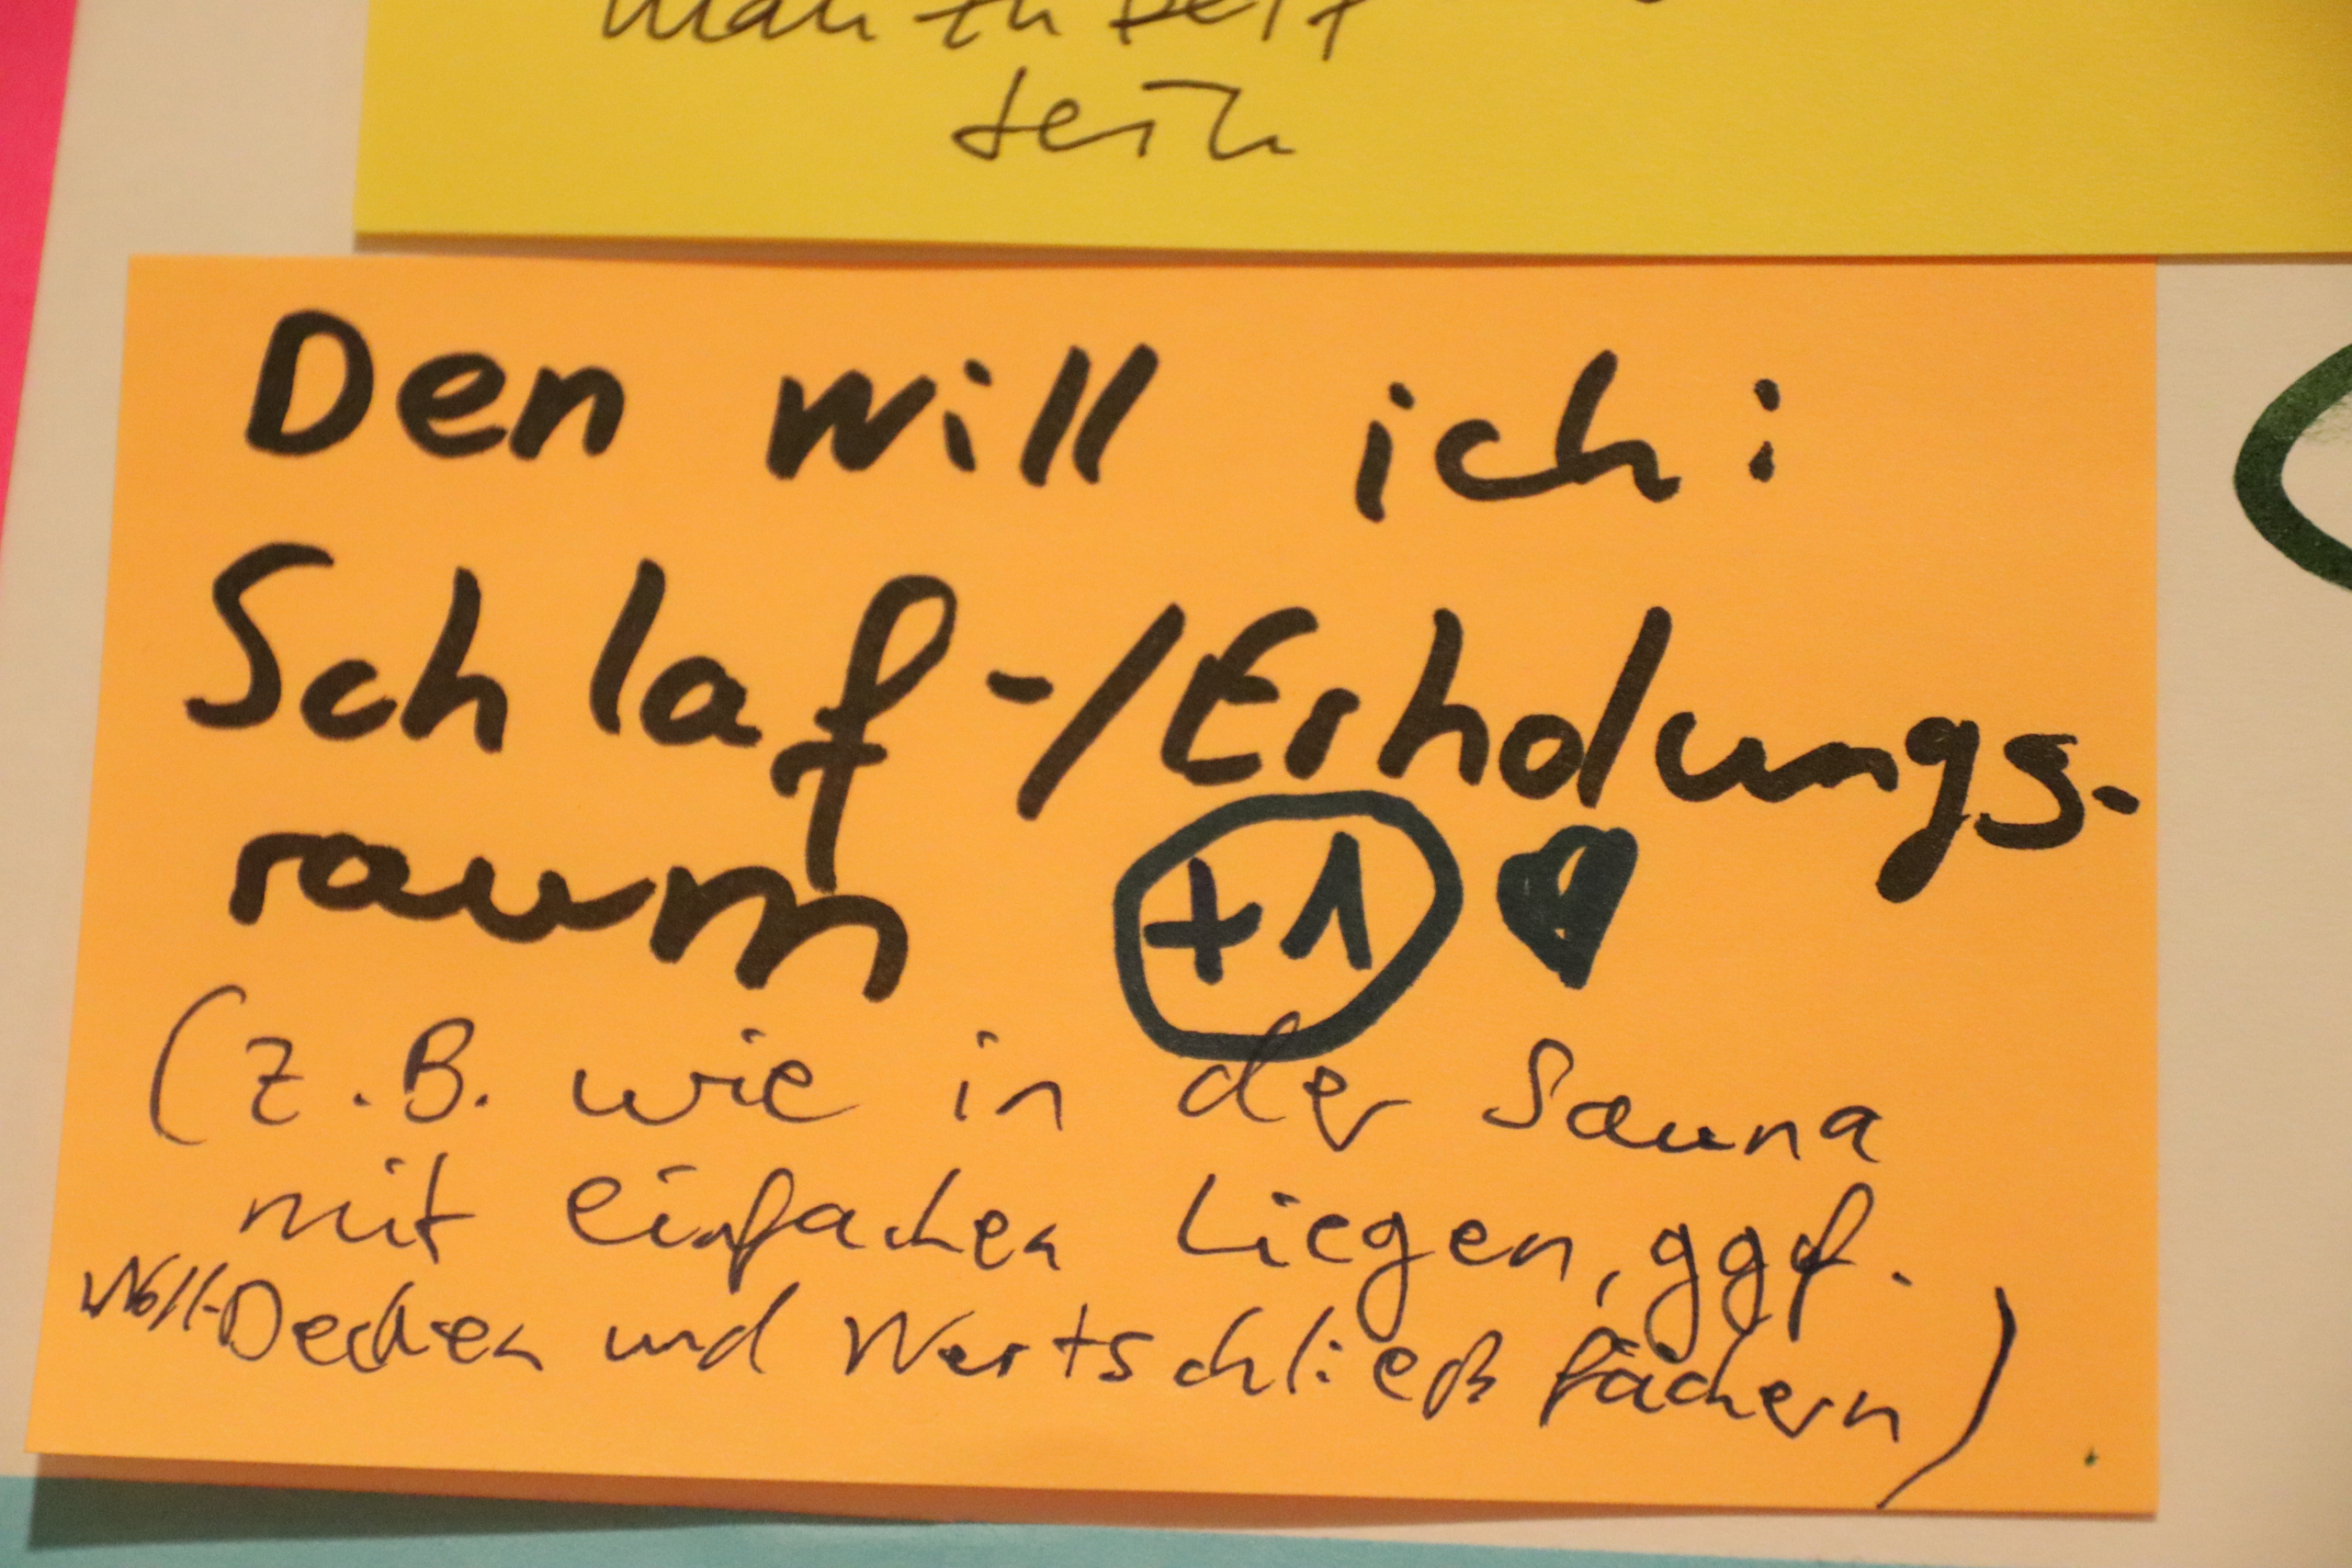 sein
Den will ich:
Schlaf-/Erholungs-
raum +1 ♥
(z.B. wie in der Sauna
mit einfachen Liegen, ggf.
Woll-Decken und Wertschließfächern)